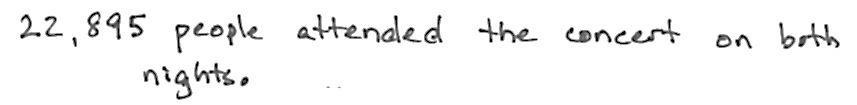 22,895 people attended the concert on both
nights.